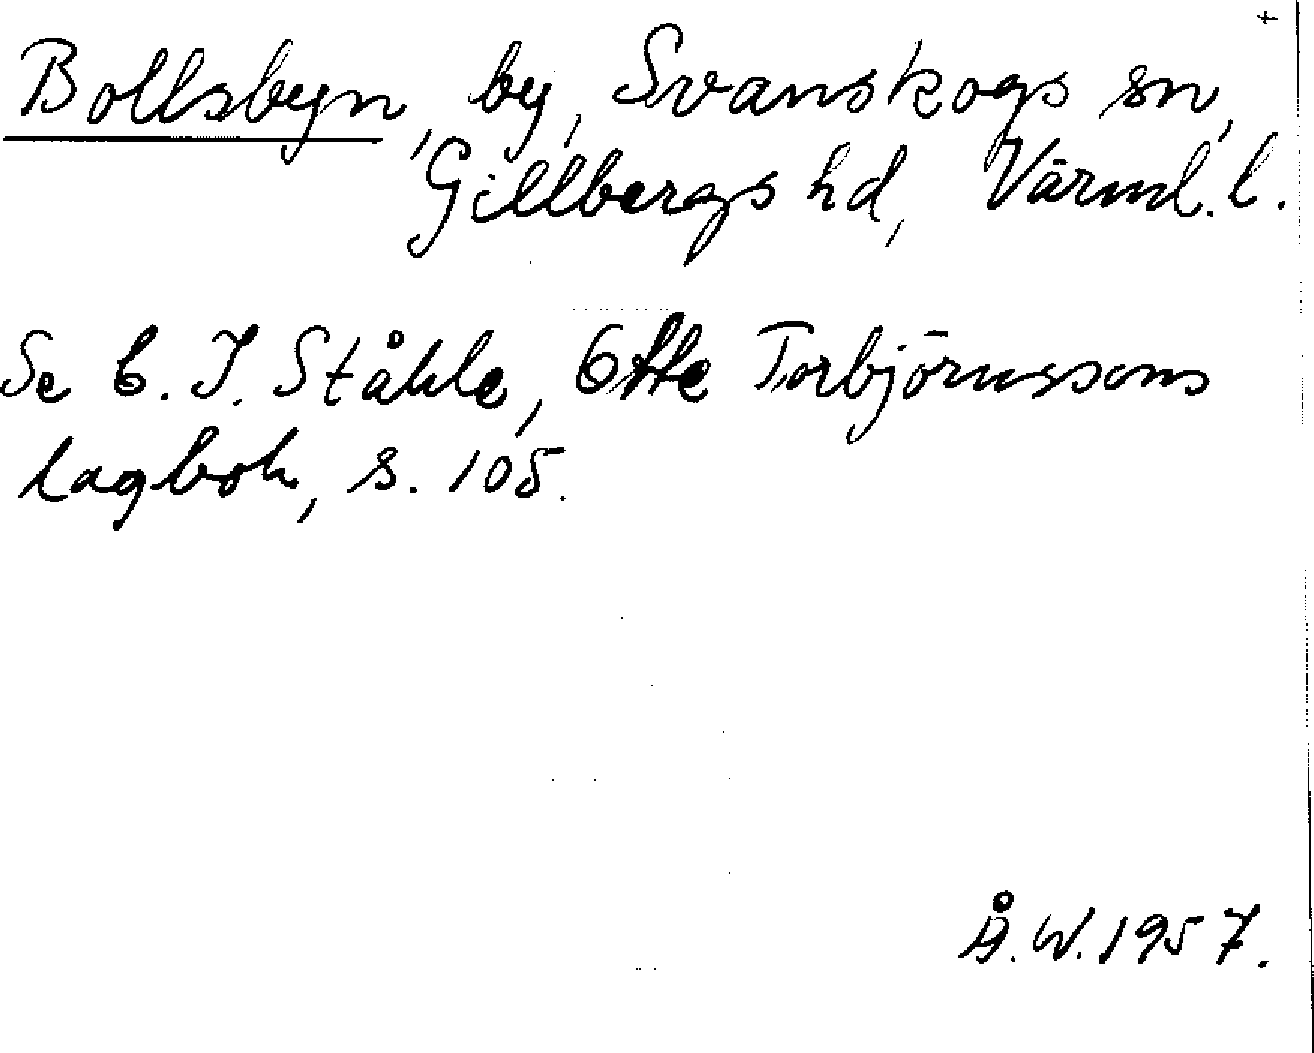 Bollsbyn, by, Svanskogs sn,
Gillbergs hd, Värml. l.
Se C. I. Ståhle, Otte Torbjörnssons
lagbok, s. 105.
Å. W. 1957.